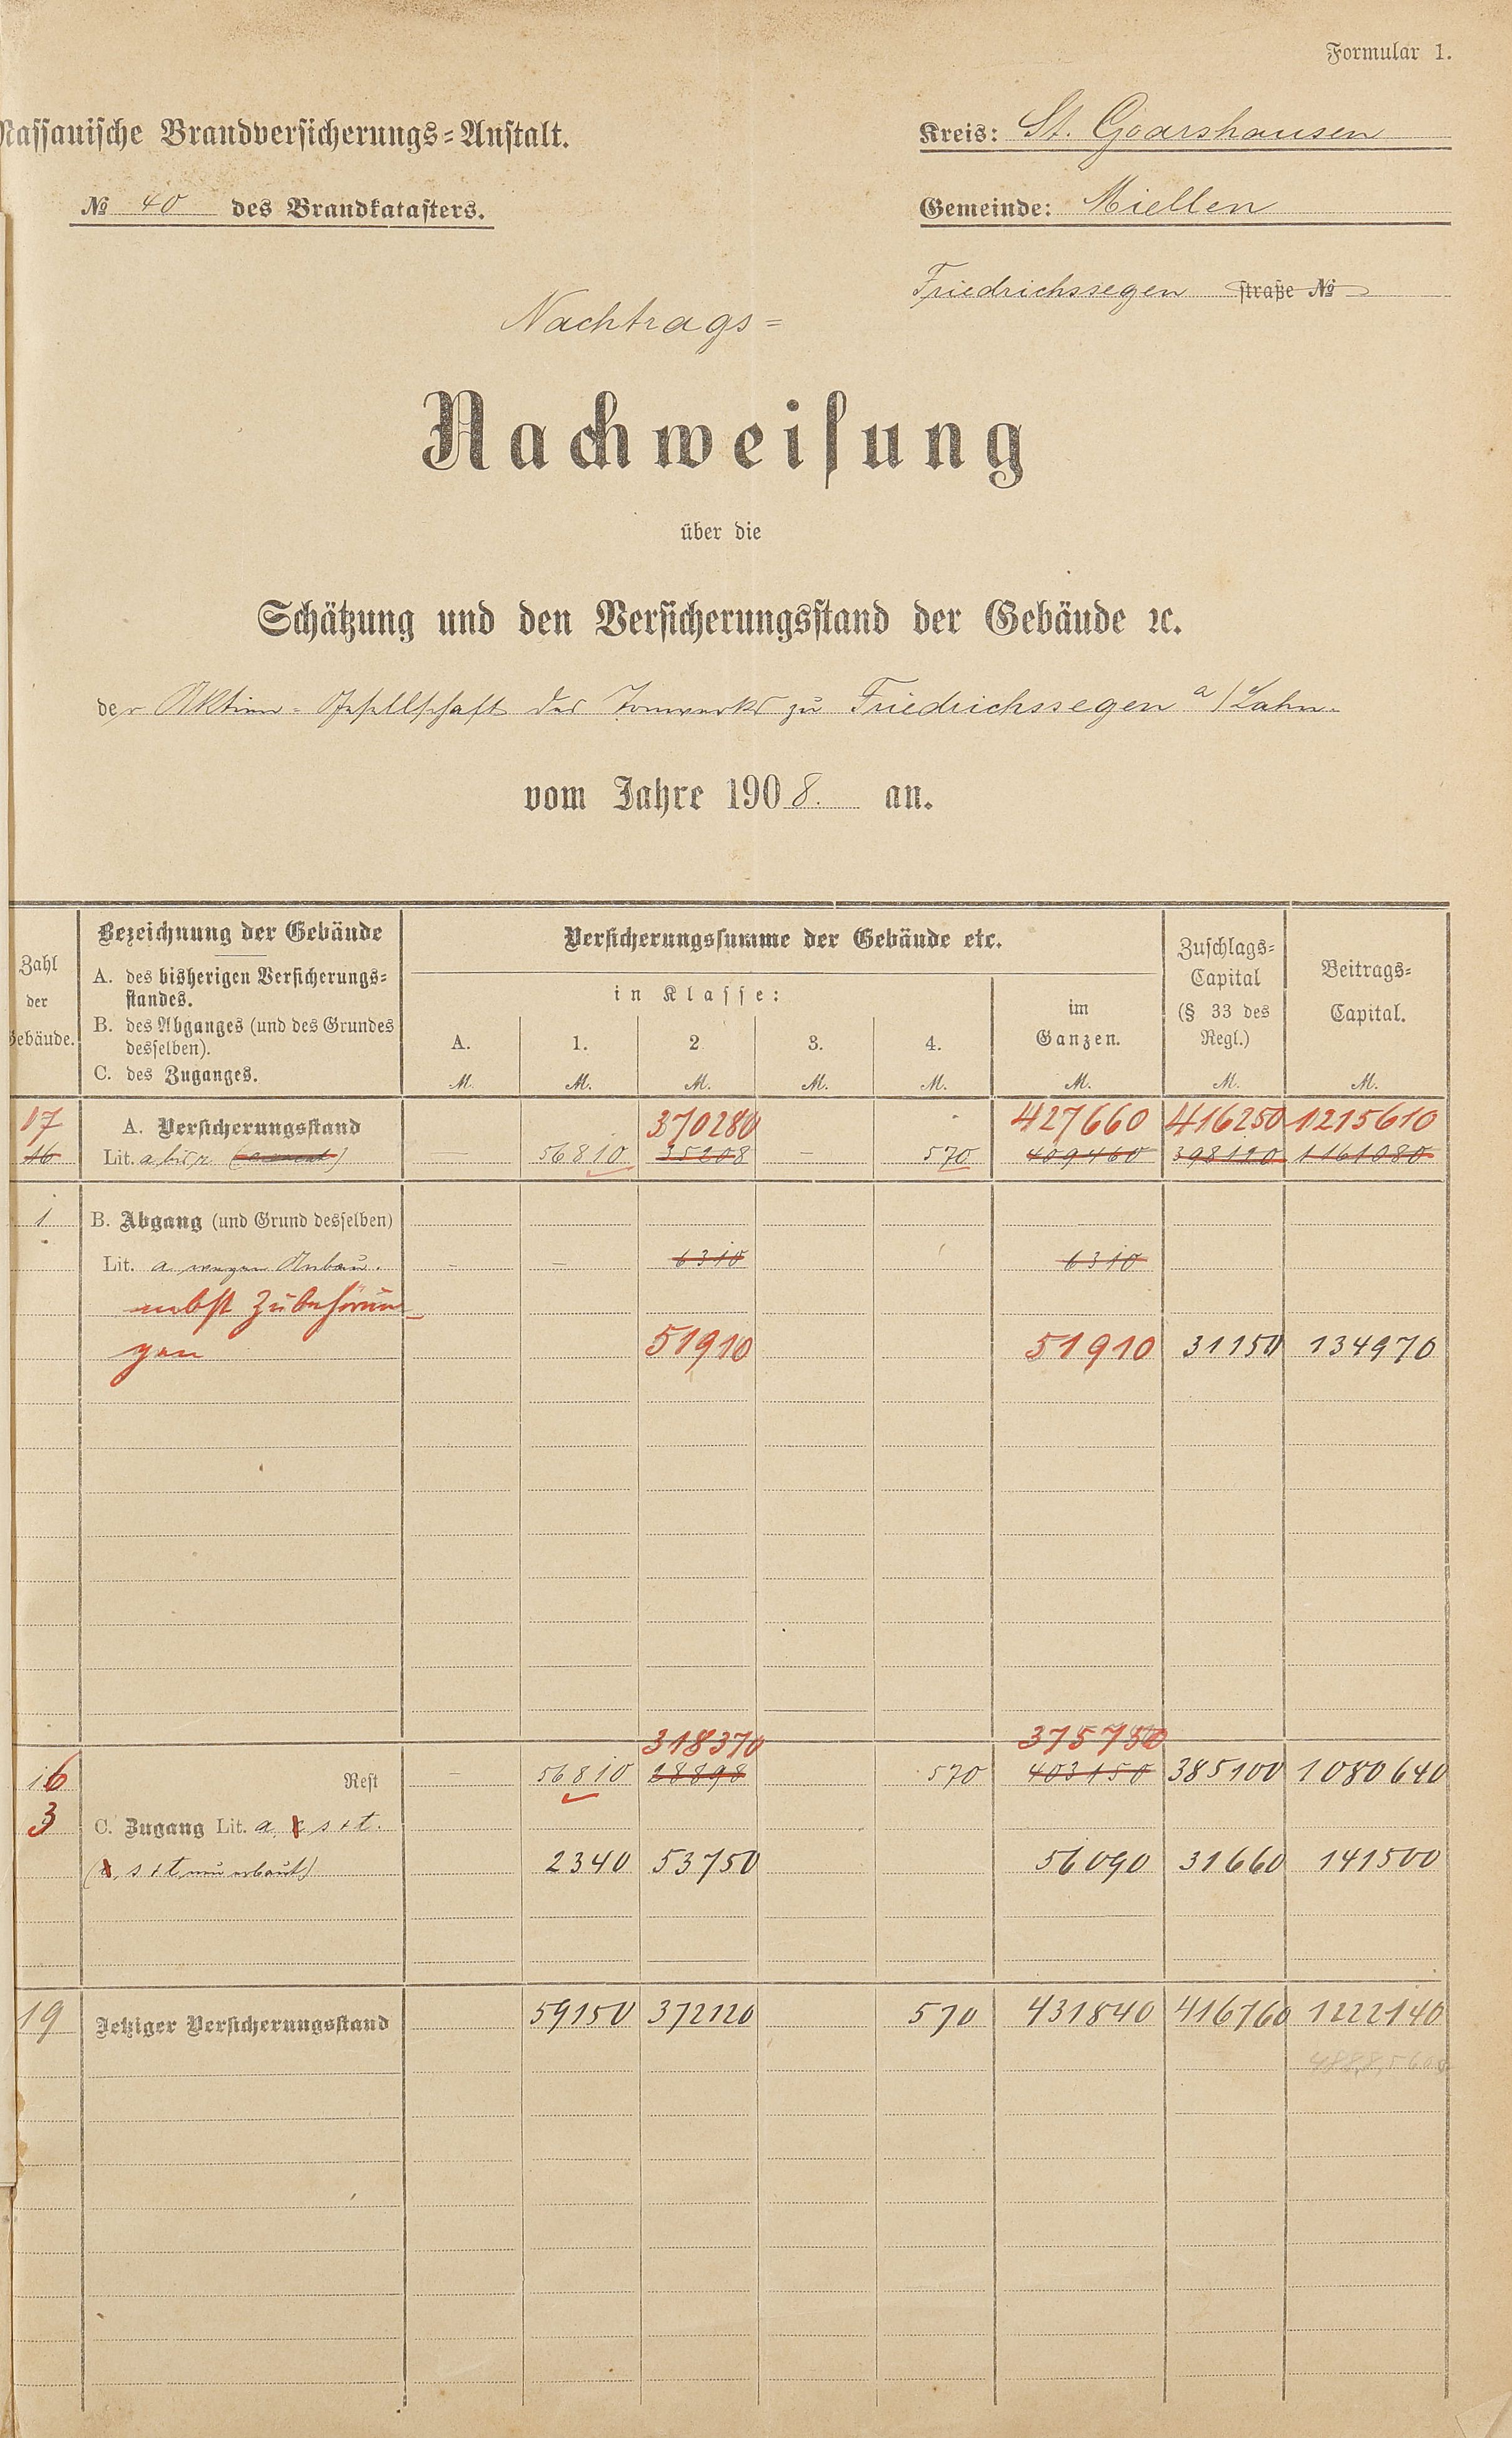 Formular 1.
Nassauische Brandversicherungs=Anstalt.
Kreis: St. Goarshausen
№ 40 des Brandkatasters.
Gemeinde: Miellen
Friedrichssegen straße №
Nachtrags=
Nachweisung
über die
Schätzung und den Versicherungsstand der Gebäude ꝛc.
der Aktien=Gesellschaft des Tonwerks zu Friedrichssegen a/Lahn.
vom Jahre 1908. an.
Zahl der Gebäude.
Bezeichnung der Gebäude
A. des bisherigen Versicherungs=
standes.
B. des Abganges (und des Grundes
desselben).
C. des Zuganges.
Versicherungssumme der Gebäude etc.
in Klasse:
A. 1. 2 3. 4.
im
Ganzen.
Zuschlags=
Capital
(§ 33 des
Regl.)
Beitrags=
Capital.
M. M. M. M. M. M. M. M.
17 A. Versicherungsstand 370280 427660 416250 1215610
16 Lit. a bis r 56810 35208 – 570 409460 398120 1161080
1 B. Abgang (und Grund desselben)
Lit. a wegen Anbau. – – 6310 6310
nebst Zubehörun
gen 51910 51910 31150 134970
318370 375750
16 Rest – 56810 28898 570 403150 385100 1080640
3 C. Zugang Lit. a, r s + t.
(r, s + t neu erbaut) 2340 53750 56090 31660 141500
19 Jetziger Versicherungsstand 59150 372120 570 431840 416760 1222140